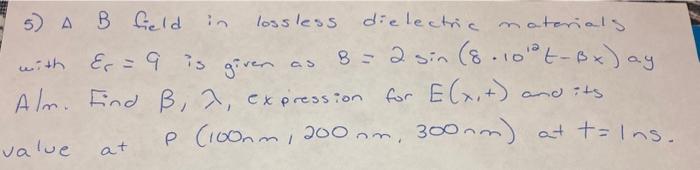 5) A B field in lossless dielectric materials
with εr = 9 is given as B = 2 sin (8.10¹²t-βx) ay
A/m. Find β, λ, expression for E(x,t) and its
value at P (100nm, 200 nm, 300nm) at t=1ns.